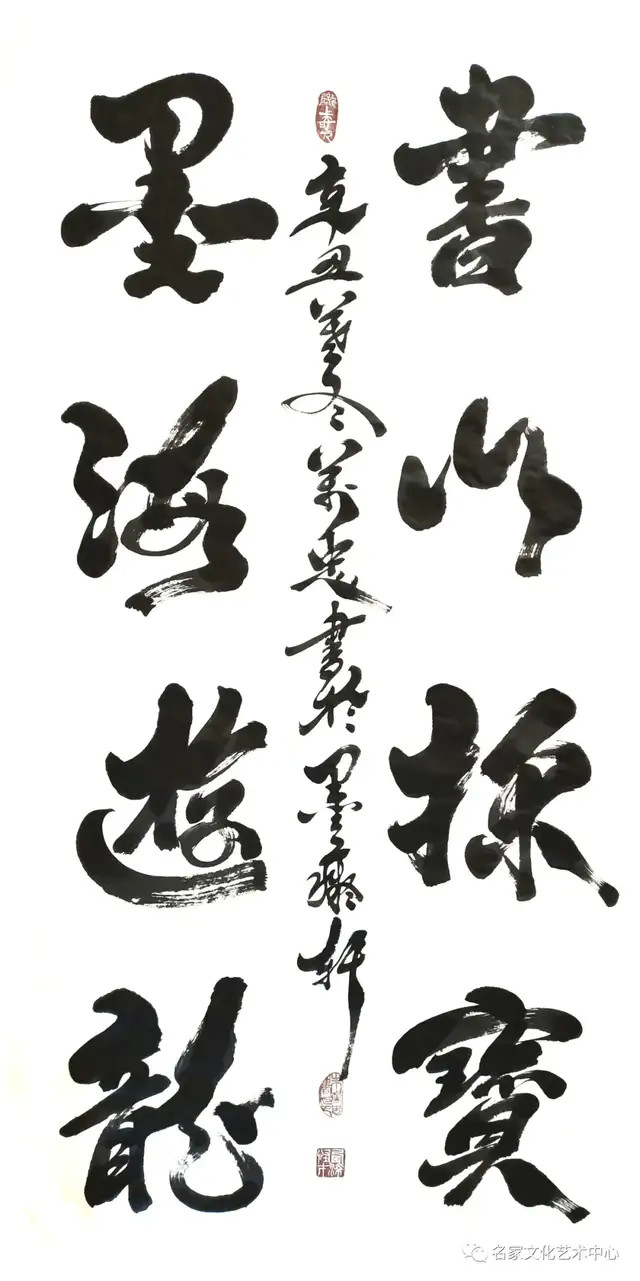 書山探寶
墨海遊龍
辛丑暮冬萬忠書於墨癡軒
名家文化艺术中心